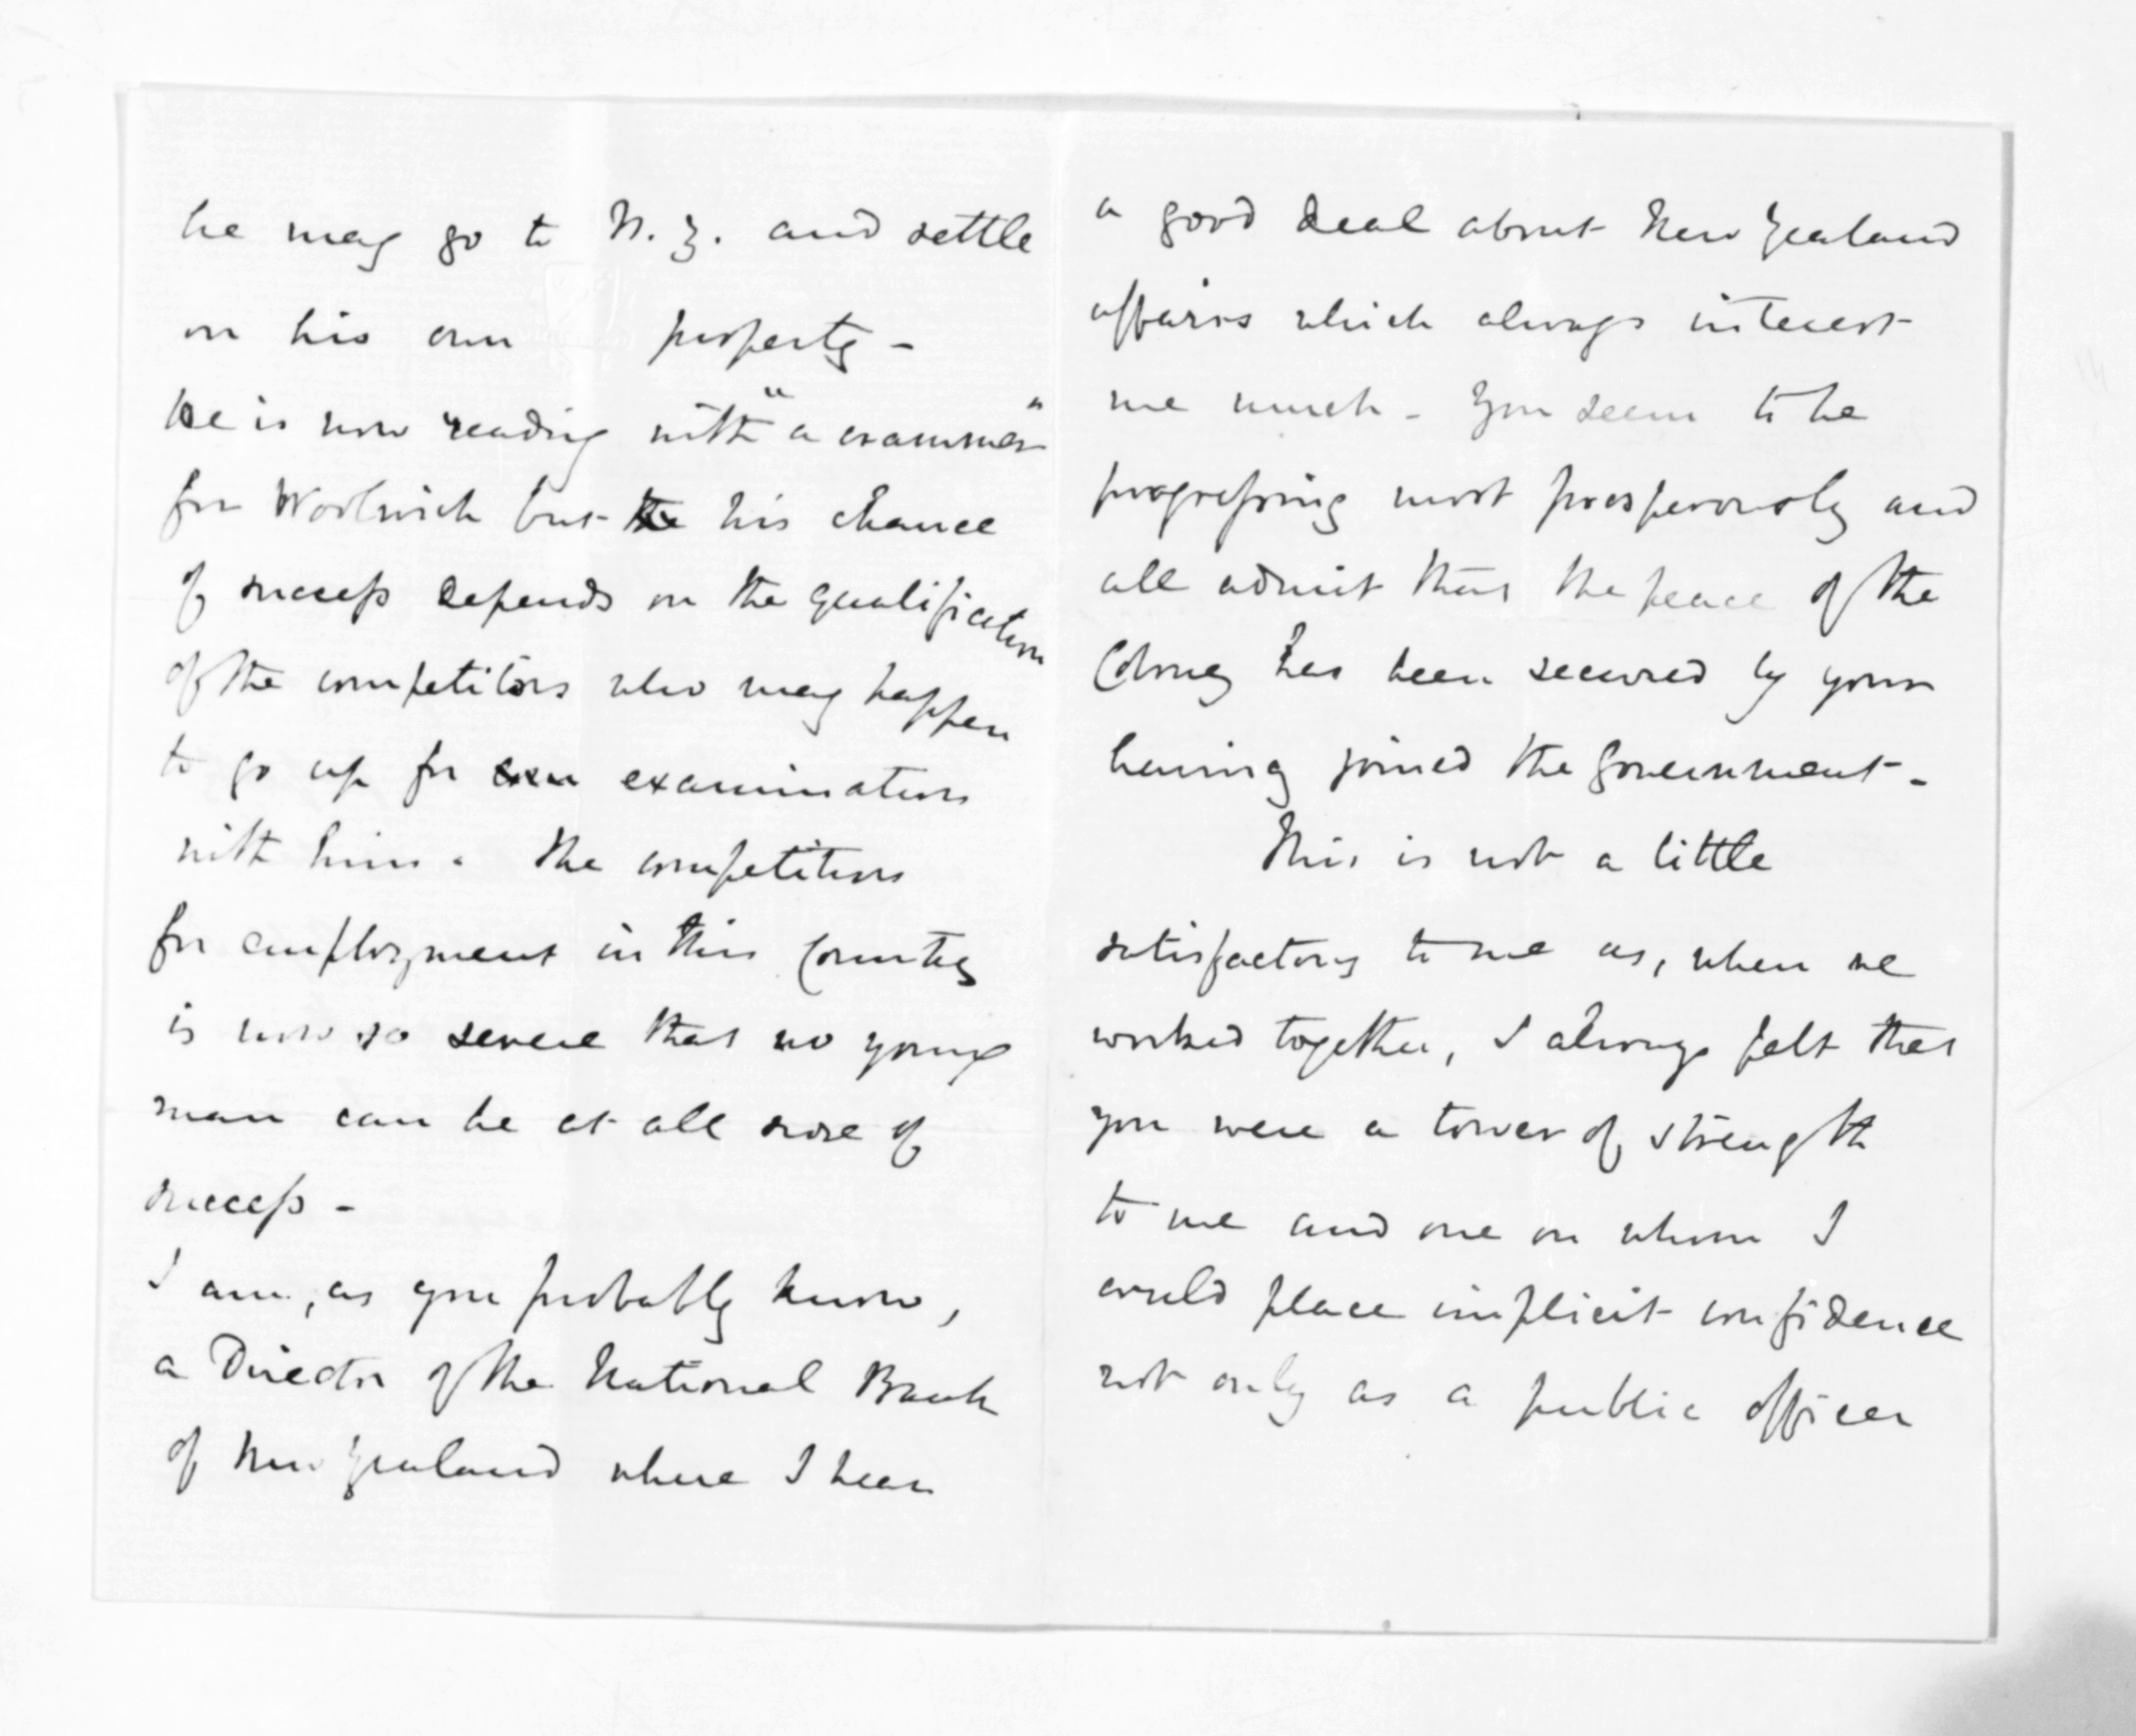 he may go to N. Z. and settle
on his own property -
He is now reading with "a crammer"
for Woolwich but the his chance
of success depends on the qualification
of the competitors who may happen
to go up for examination
with him. The competition
for employment in this Country
is now so severe that no young
man can be at all sure of
success -
I am, as you probably know,
a Director of the National Bank
of New Zealand where I hear
a good deal about New Zealand
affairs which always interest
me much - You seem to be
progressing most prosperously and
all admit that the peace of the
Colony has been secured by your
having joined the Government -
This is not a little
satisfactory to me as, when we
worked together, I always felt that
you were a tower of strength
to me and one on whom I
could place implicit confidence
not only as a public officer